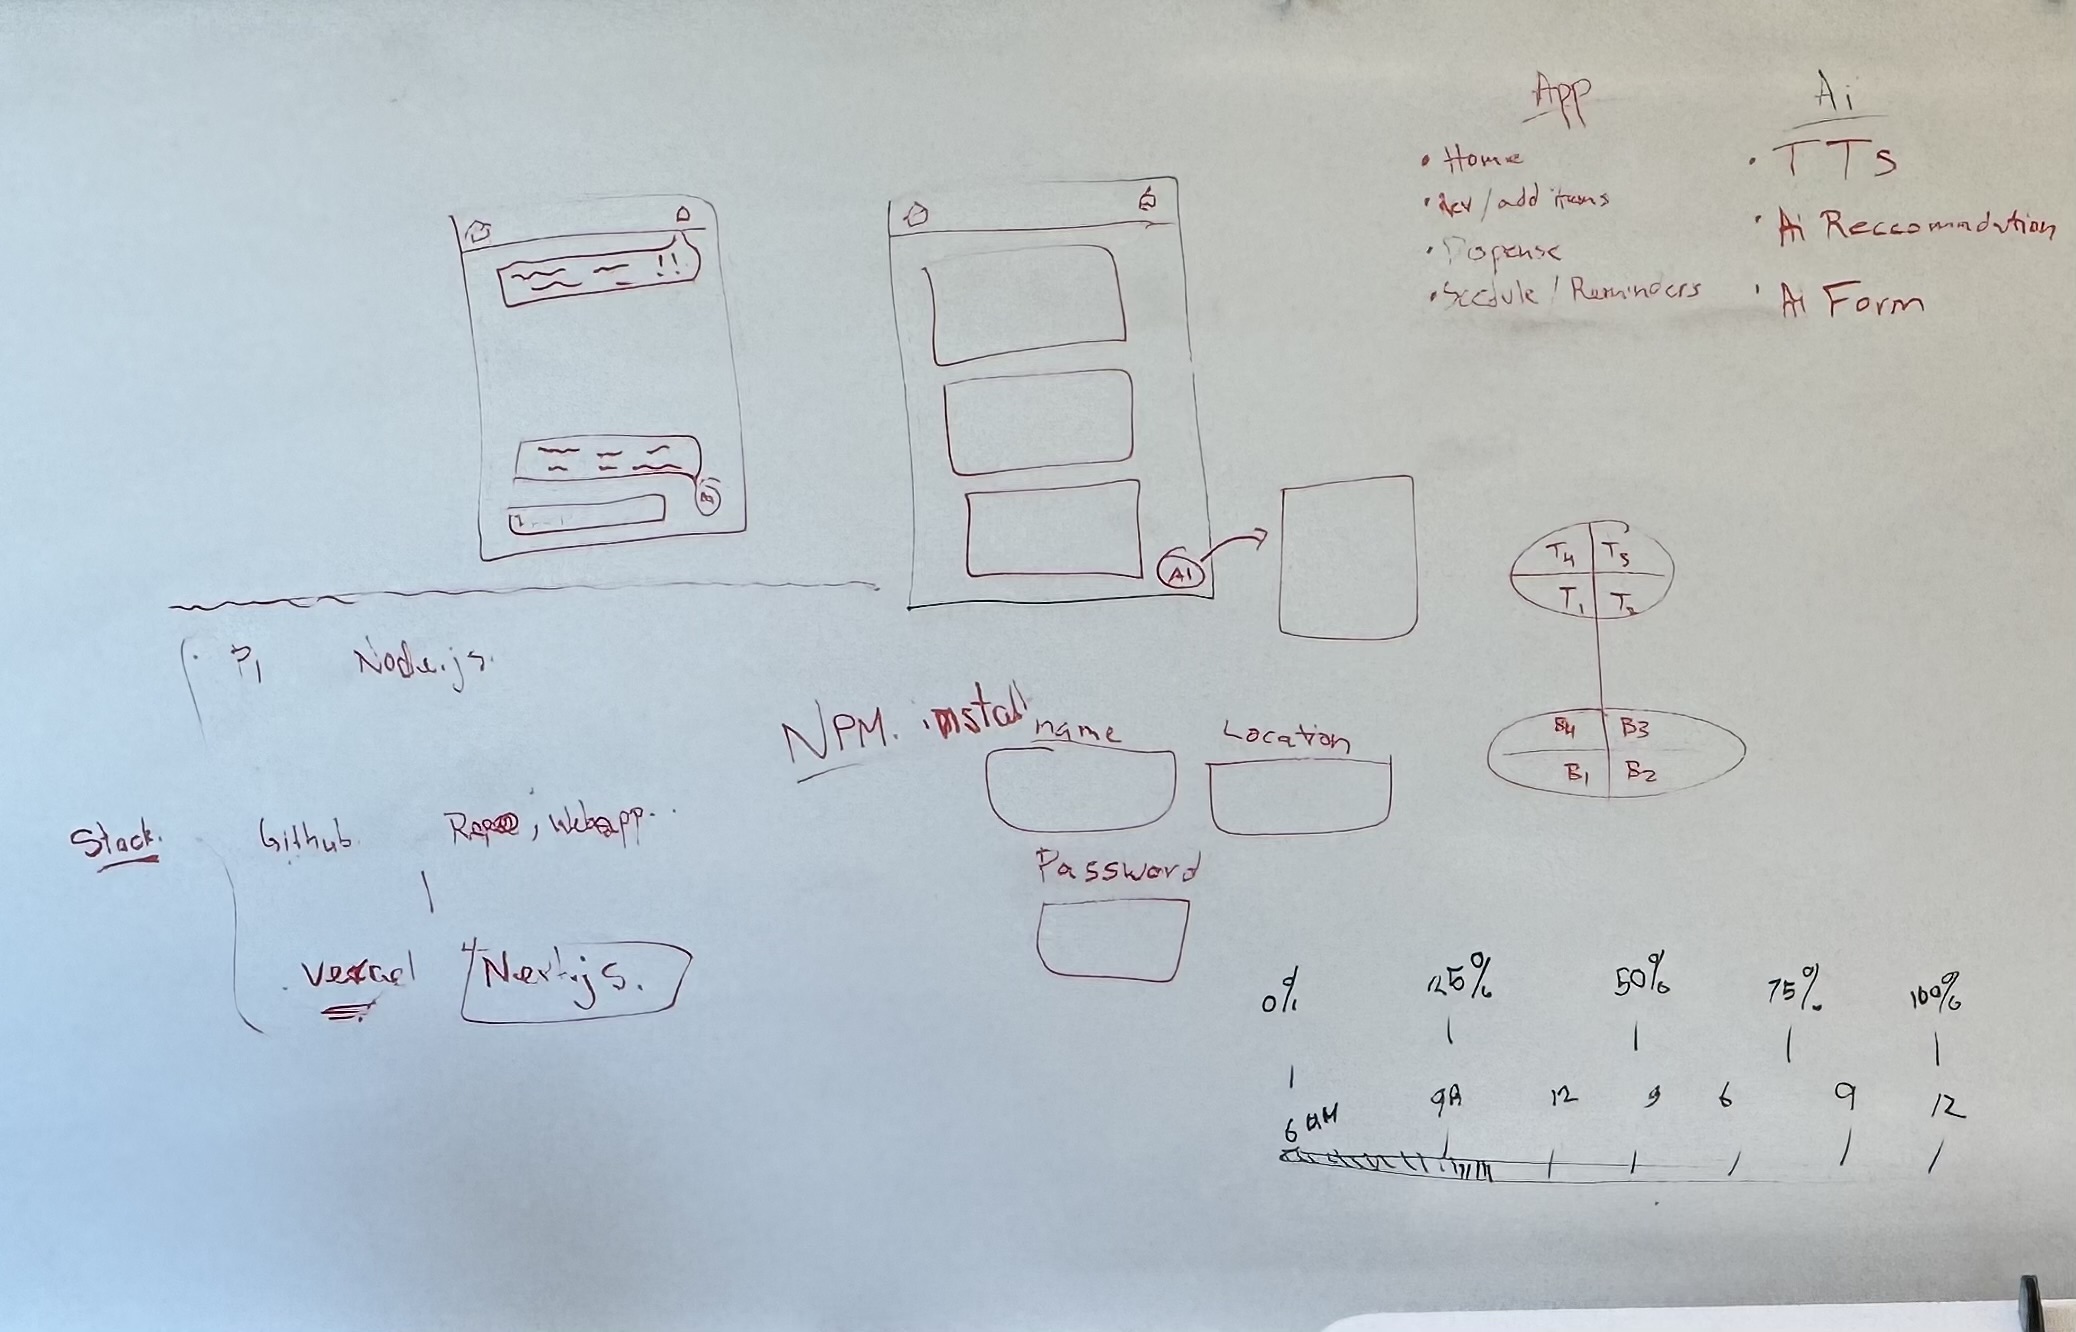 App
• Home
/ add items
• Dispense
/ Reminders
Ai
• TTS
• Ai Reccommdation
• Ai Form
!!
AI
T4 T3
T1 T2
B4 B3
B1 B2
Pi Node.js.
NPM. install
name
Location
Password
Stack.
Github Repo, Webapp..
Vercel Next.js.
0% 25% 50% 75% 100%
6 AM 9A 12 3 6 9 12